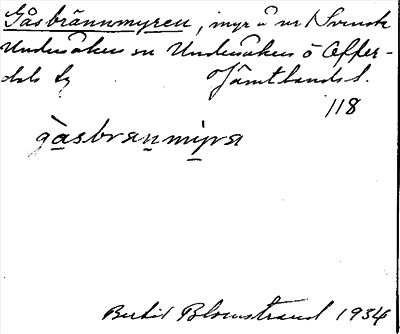 Gåsbrännmyren, myr å nr 1 Svensk
Undersåker sn Undersåkers o Offer-
dals tg Jämtlands l.
118
gàsbranmyra
Bertil Blomstrand 1934